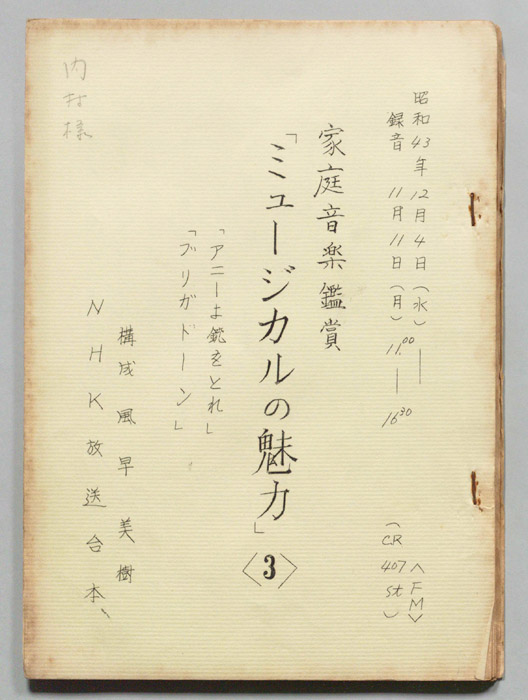 昭和43年12月4日（水）―― 〈FM〉
録音 11月11日（月）11.00―1630 （CR 407 st）
家庭音楽鑑賞
「ミュージカルの魅力」〈3〉
「アニーよ銃をとれ」
「ブリガドーン」
構成 風早美樹
NHK放送台本
内村様